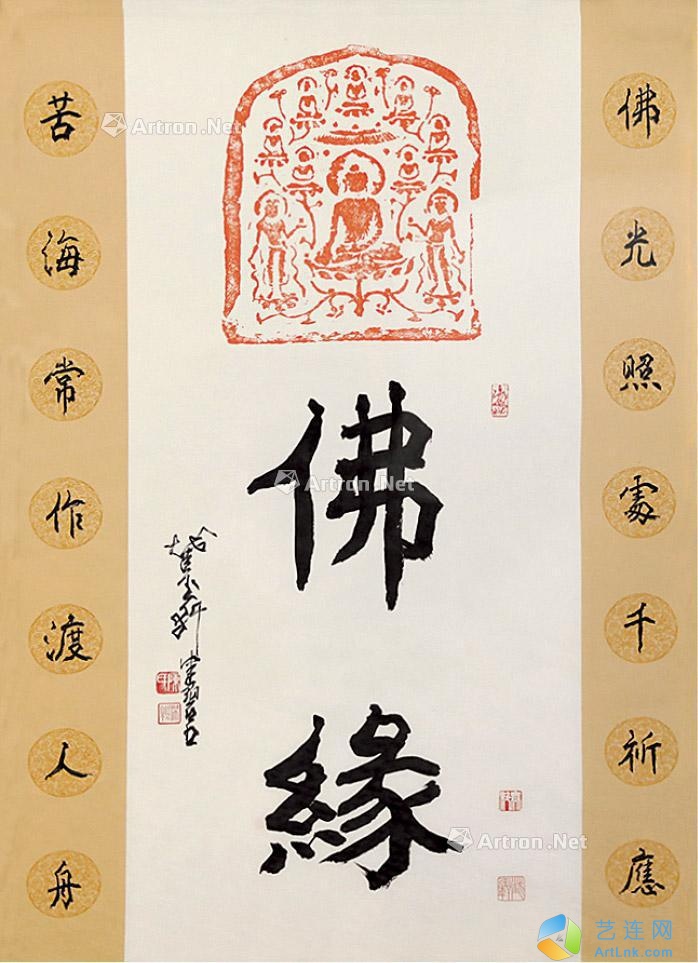 佛光照處千祈應
佛緣
苦海常作渡人舟
Artron.Net
Artron.Net
Artron.Net
艺连网
ArtLnk.com